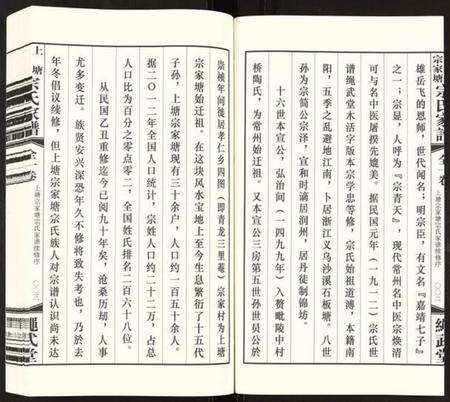 宗家塘宗氏家譜
全一卷
上塘宗家塘宗氏家谱续修序
繩武堂
雄岳飞的恩师，世代闻名；明宗臣，有文名『嘉靖七子』
之一；宗显，人呼为『宗青天』，现代常州名中医宗焕清
可与名中医屠揆先媲美。据民国元年（一九一二）宗氏世
谱绳武堂木活字版本宗学忠等修，宗氏始祖道溥，本籍南
阳，五季之乱避地江南，卜居浙江义乌沙溪石板塘。八世
孙为宗简公宗泽，宣和时谪居润州，居丹徒制锦坊。
十六世本宣公，弘治间（一四九九年）入赘毗陵中村
桥陶氏，为常州始迁祖。又本宣公三房第五世孙世员公於
崇祯年间徙居孝仁乡四图（即青龙三里菴）宗家村为上塘
宗家塘始迁祖。在这块风水宝地上至今生息繁衍了十五代
子孙，上塘宗家塘现有三十余户，人口约一百五十余人。
据二〇一二年全国人口统计，宗姓人口约二十二万，占总
人口比为百分之零点零二，全国姓氏排名二百六十八位。
从民国乙丑重修迄今已阅九十年矣，沧桑历劫，人事
尤多变迁。族贤安兴深恐年久不修将致失考也，乃於去
年冬倡议续修，但上塘宗家塘宗氏族人对宗谱认识尚未达
上塘宗氏家譜
全一卷
上塘宗家塘宗氏家谱续修序
繩武堂